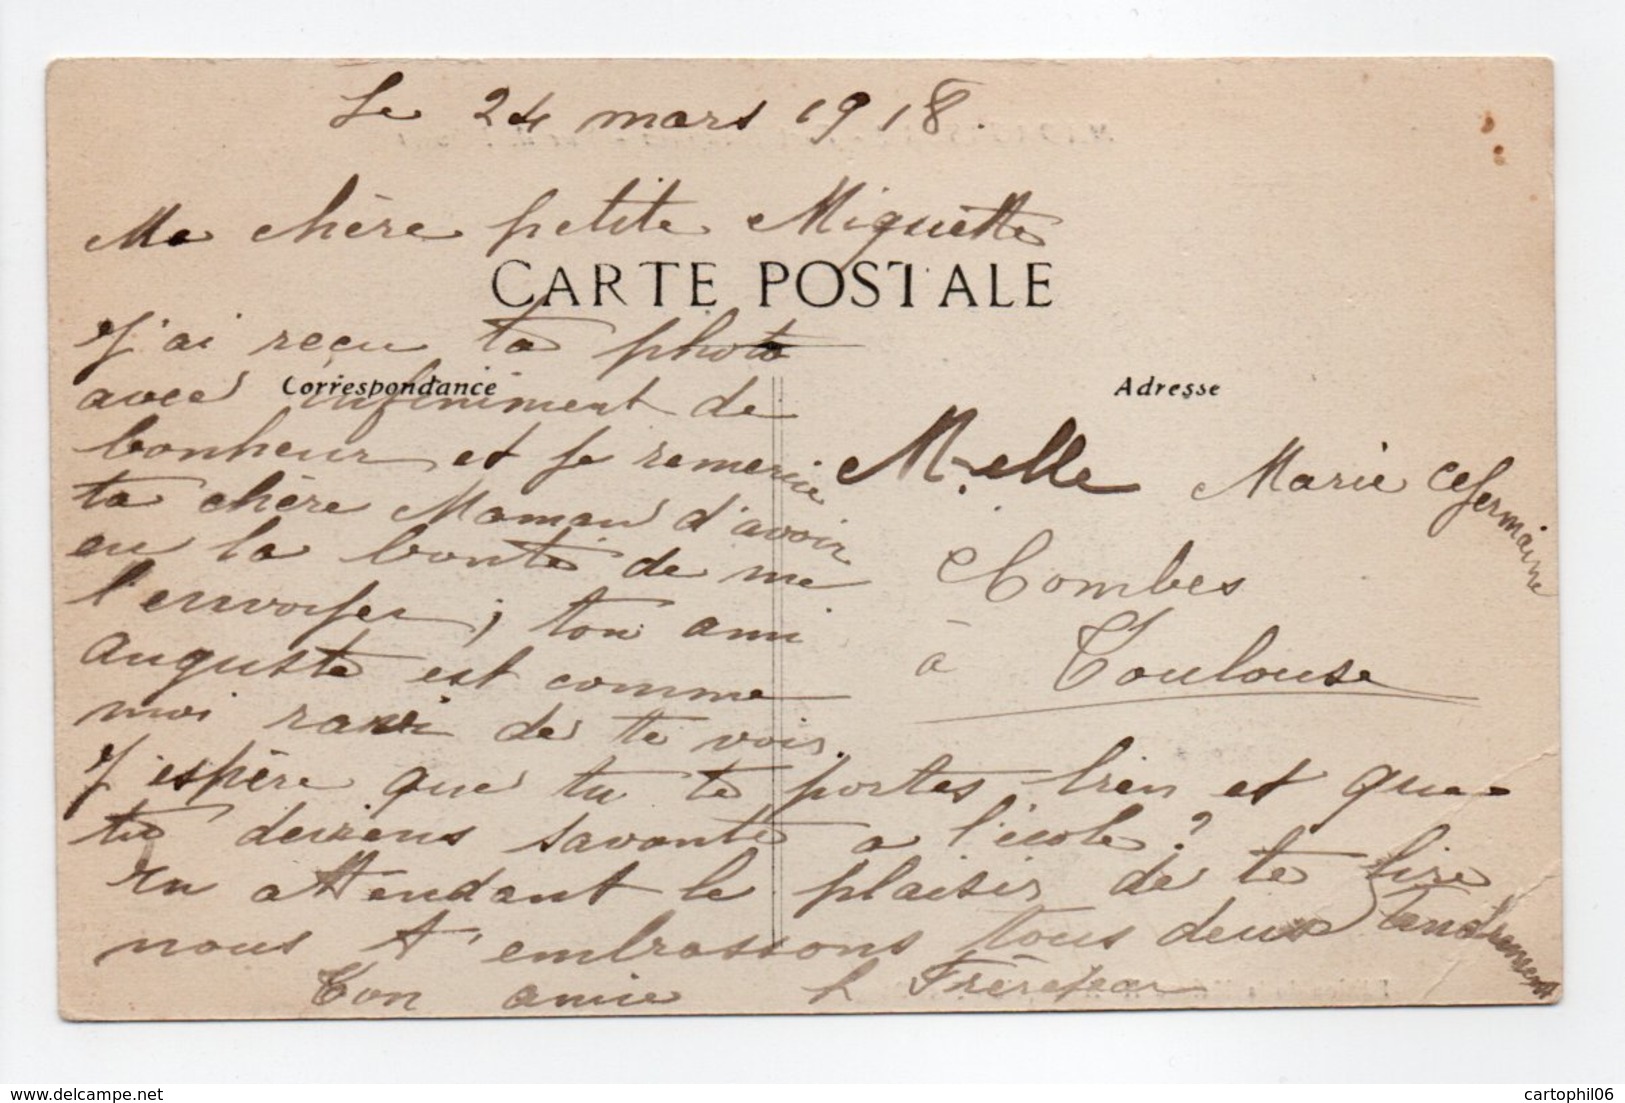 Le 24 mars 1918.
Ma chère petite Miguette
CARTE POSTALE
J'ai reçu ta photo
Correspondance
avec infiniment de
bonheur et je remercie
ta chère Maman d'avoir
eu la bonté de me
l'envoyer; ton ami
Auguste est comme
moi ravi de te voir.
J'espère que tu te portes bien et que
tu deviens savante a l'école?
En attendant le plaisir de te lire
nous t'embrassons tous deux tendrement
Ton amie
Adresse
M-elle Marie Germaine
Combes
à Toulouse
cartophil06